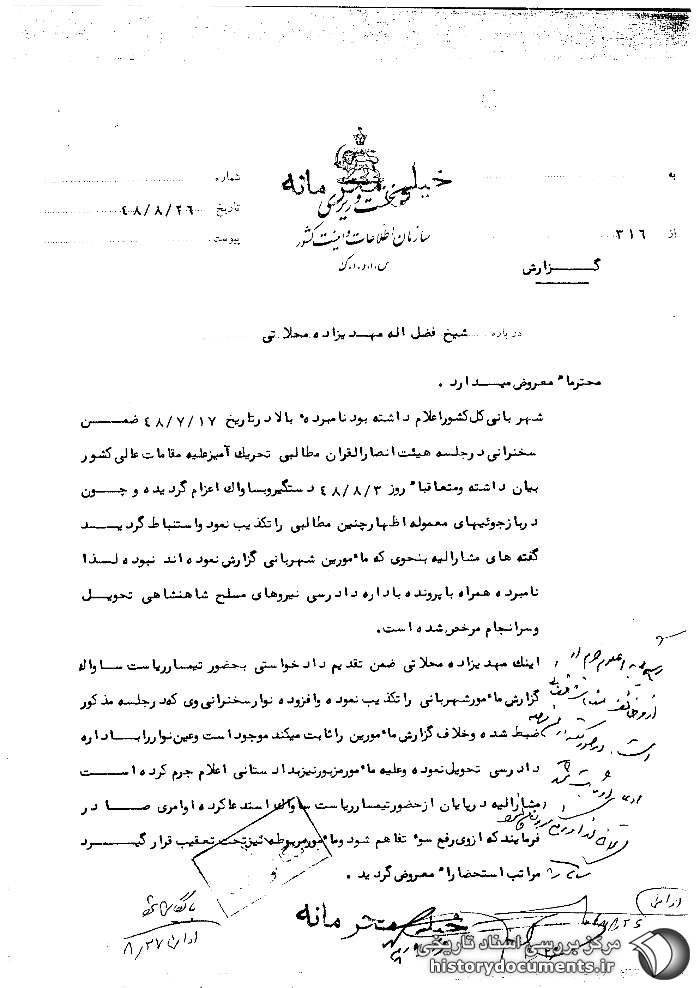 خیلی محرمانه
نخست وزیری
سازمان اطلاعات و امنیت کشور
س.ا.و.ا.ک
به
از ۳۱۶
شماره
تاریخ ۴۸/۸/۲۶
پیوست
گزارش
درباره شیخ فضل اله مهدیزاده محلاتی
محترما" معروض میدارد .
شهربانی کل کشور اعلام داشته بود نامبرده بالا در تاریخ ۴۸/۷/۱۷ ضمن
سخنرانی در جلسه هیئت انصار القران مطالبی تحریک آمیز علیه مقامات عالی کشور
بیان داشته و متعاقبا" روز ۴۸/۸/۳ دستگیر و بساواک اعزام گردیده و چون
در بازجوئیهای معموله اظهار چنین مطالبی را تکذیب نمود و استنباط گردید
گفته های مشارالیه بنحوی که مأمورین شهربانی گزارش نموده اند نبوده لذا
نامبرده همراه با پرونده باداره دادرسی نیروهای مسلح شاهنشاهی تحویل
و سرانجام مرخص شده است .
اینک مهدیزاده محلاتی ضمن تقدیم دادخواستی بحضور تیمسار ریاست ساواک
گزارش مأمور شهربانی را تکذیب نموده و افزوده نوار سخنرانی وی که در جلسه مذکور
ضبط شده و خلاف گزارش مأمورین را ثابت میکند موجود است و عین نوار را باداره
دادرسی تحویل نموده و علیه مأمور مزبور نیز بدادستانی اعلام جرم کرده است
مشارالیه در پایان از حضور تیمسار ریاست ساواک استدعا کرده اوامری صادر
فرمایند که از وی رفع سوء تفاهم شود و مأمور مربوطه نیز تحت تعقیب قرار گیرد
مراتب استحضارا" معروض گردید .
خیلی محرمانه
۸/۲۷
مرکز بررسی اسناد تاریخی
historydocuments.ir